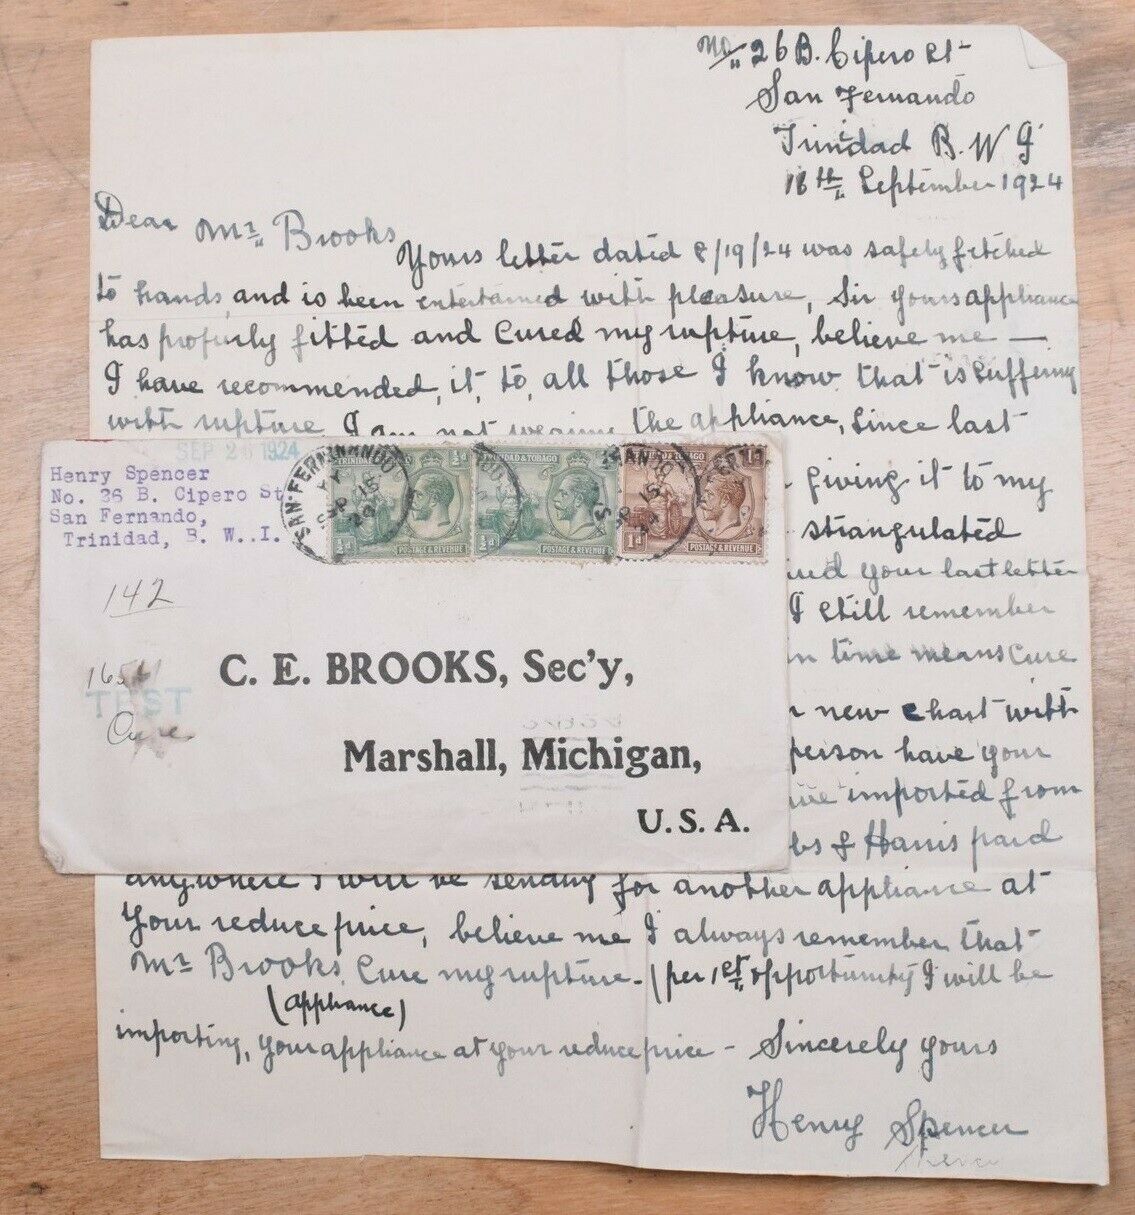 No/ 26 B. Cipero St-
San Fernando
Trinidad B. W I
16th September 1924
Dear Mr Brooks
Yours letter dated 8/19/24 was safely fetched
to hands, and is been entertained with pleasure, Sir yours appliance
has properly fitted and Cured my rupture, believe me —
I have recommended, it, to, all those I know that is Suffering
with rupture I am not wearing the appliance, Since last
giving it to my
strangulated
your last letter
I still remember
time means Cure
new Chart with
person have your
imported from
& Harris paid
anywhere I will be sending for another appliance at
your reduce price, believe me I always remember that
Mr Brooks, Cure my rupture- (per 1st opportunity I will be
(appliance)
importing, your appliance at your reduce price - Sincerely yours
Henry Spencer
SEP 26 1924
Henry Spencer
No. 26 B. Cipero St
San Fernando,
Trinidad, B. W..I.
SAN-FERNANDO
SP 15
24
TRINIDAD & TOBAGO
½d
½d
POSTAGE & REVENUE
TRINIDAD & TOBAGO
½d
½d
POSTAGE & REVENUE
1d
SP 15
24
1d
1d
POSTAGE & REVENUE
142
TEST
Cure
C. E. BROOKS, Sec'y,
Marshall, Michigan,
U. S. A.